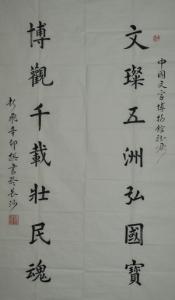 中國文字博物館
文璨五洲弘國寶
博觀千載壯民魂
辛卯 撰書於長沙